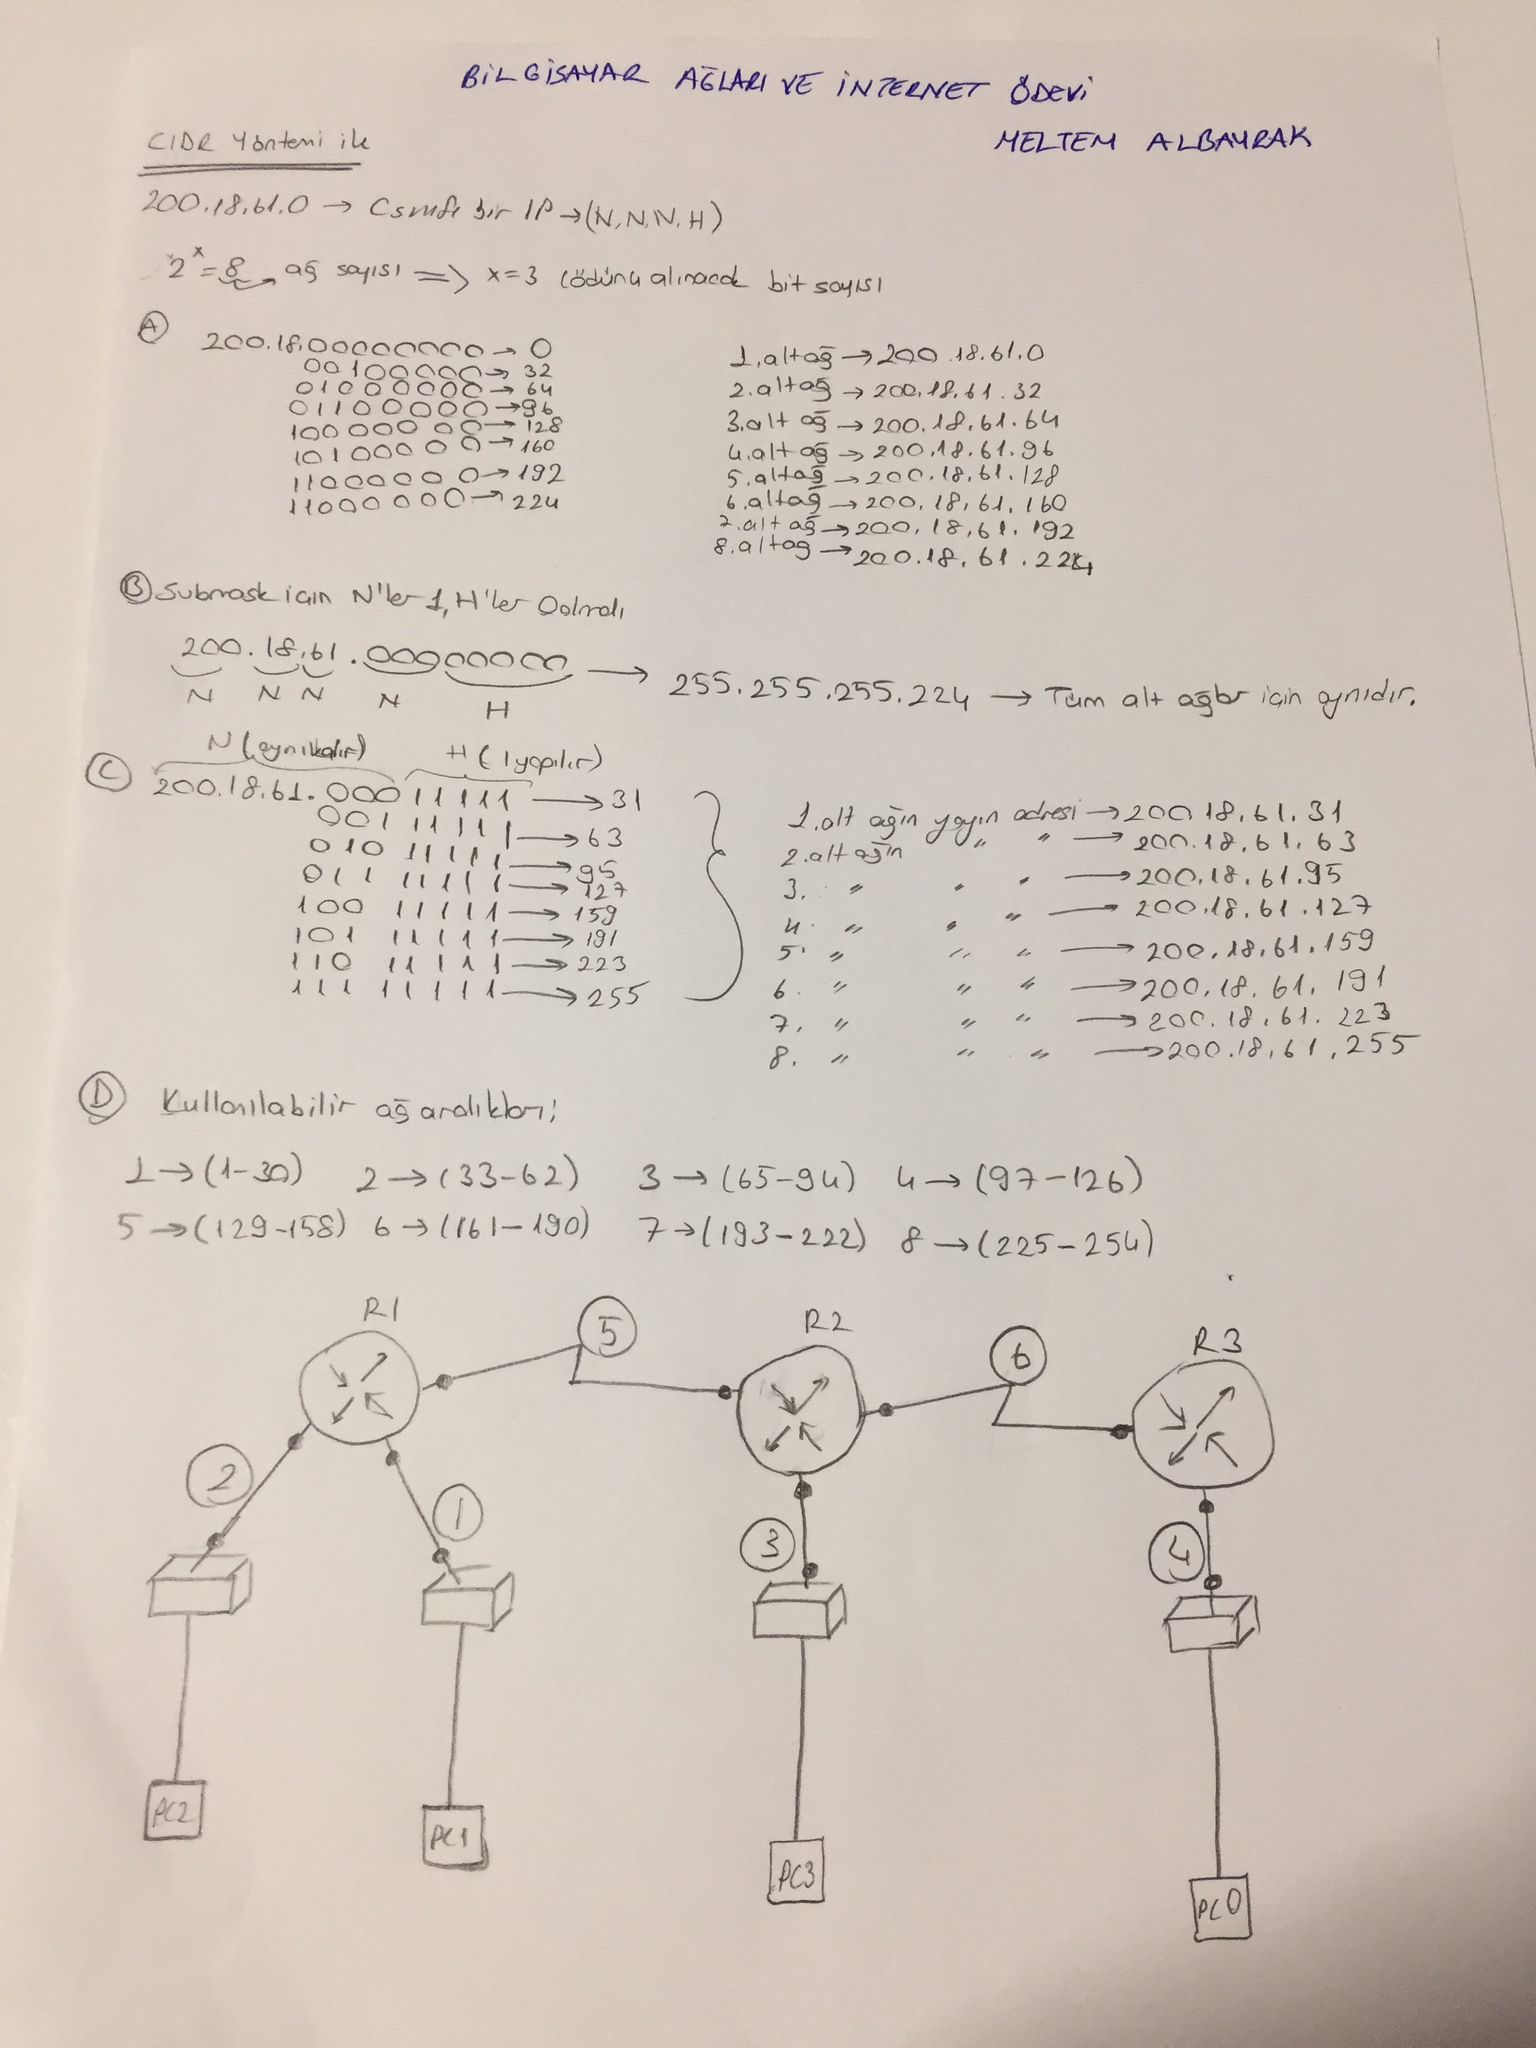 BİLGİSAYAR AĞLARI VE İNTERNET ÖDEVİ
MELTEM ALBAYRAK
CIDR Yöntemi ile
200.18.61.0 → C sınıfı bir IP → (N, N, N, H)
2^x = 8 → ağ sayısı => x=3 (ödünç alınacak bit sayısı
A
200.18.00000000 → 0
00100000 → 32
01000000 → 64
01100000 → 96
10000000 → 128
10100000 → 160
11000000 → 192
11000000 → 224
1.alt ağ → 200.18.61.0
2.alt ağ → 200.18.61.32
3.alt ağ → 200.18.61.64
4.alt ağ → 200.18.61.96
5.alt ağ → 200.18.61.128
6.alt ağ → 200.18.61.160
7.alt ağ → 200.18.61.192
8.alt ağ → 200.18.61.224
B Submask için N'ler 1, H'ler 0 olmalı
200.18.61.00000000 → 255.255.255.224 → Tüm alt ağlar için aynıdır.
N N N N H
N (aynı kalır) H (1 yapılır)
C 200.18.61.00011111 → 31
001 11111 → 63
010 11111 → 95
011 11111 → 127
100 11111 → 159
101 11111 → 191
110 11111 → 223
111 11111 → 255
1.alt ağın yayın adresi → 200.18.61.31
2.alt ağın " " → 200.18.61.63
3. " " " → 200.18.61.95
4. " " " → 200.18.61.127
5. " " " → 200.18.61.159
6. " " " → 200.18.61.191
7. " " " → 200.18.61.223
8. " " " → 200.18.61.255
D Kullanılabilir ağ aralıkları;
1 → (1-30) 2 → (33-62) 3 → (65-94) 4 → (97-126)
5 → (129-158) 6 → (161-190) 7 → (193-222) 8 → (225-254)
R1
5
R2
6
R3
2
1
3
4
PC2
PC1
PC3
PC0